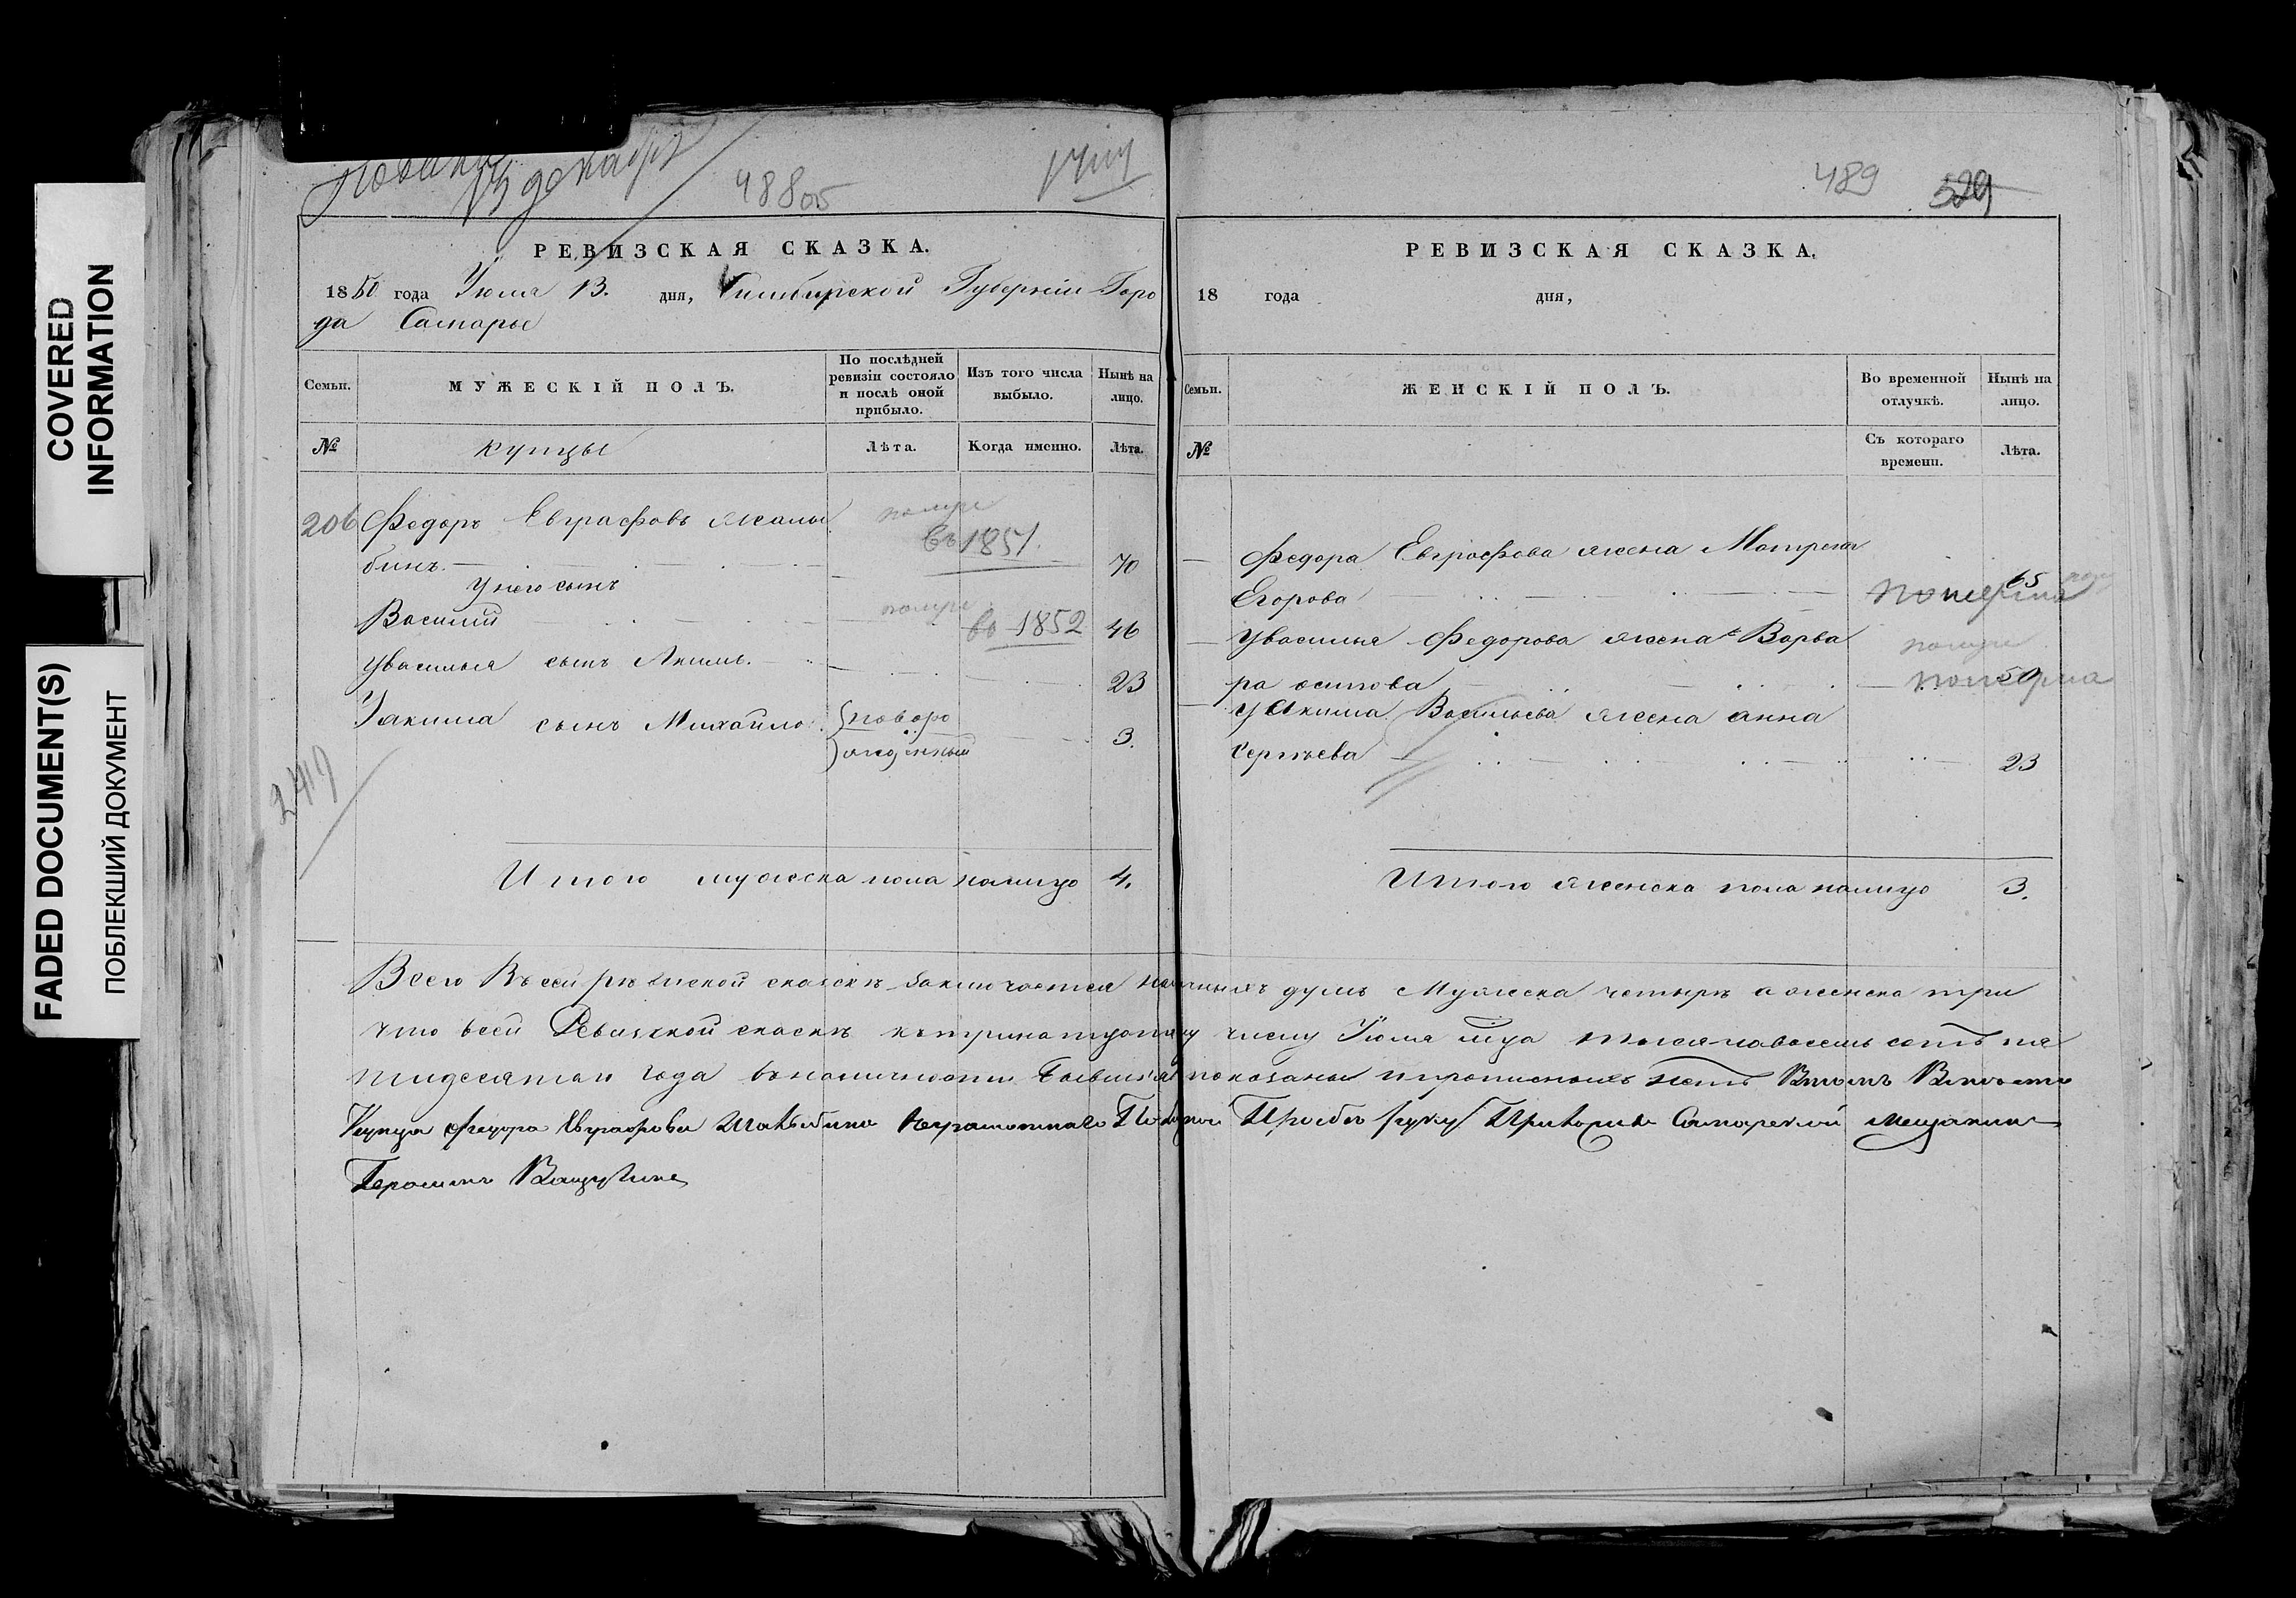 COVERED
INFORMATION
FADED DOCUMENT(S)
ПОБЛЕКШИЙ ДОКУМЕНТ
13 декабря
488об
РЕВИЗСКАЯ СКАЗКА.
1850 года Іюля 13. дня, Симбирской Губерніи Горо
да Самары
Семьи.
МУЖЕСКІЙ ПОЛЪ.
По послѣдней ревизіи состояло и послѣ оной прибыло.
Изъ того числа выбыло.
Нынѣ на лицо.
№
купцы
Лѣта.
Когда именно.
Лѣта.
206 Федоръ Евграфовъ
бинъ. 70
въ 1851.
У него сынъ
Василий во 1852 46
Увасилья сынъ Акимъ. 23
Уакима сынъ Михайло. новоро
жденный 3.
Итого мужеска пола налицо 4.
489 529
РЕВИЗСКАЯ СКАЗКА.
18 года дня,
Семьи.
ЖЕНСКІЙ ПОЛЪ.
Во временной отлучкѣ.
Нынѣ на лицо.
№
Съ котораго времени.
Лѣта.
Федора Евграфова жена Матрена
Егорова 65
померла
Увасилья Федорова жена Варва
ра осипова 50
померла
У Акима Васильева жена анна
Сергѣева 23
Итого женска пола налицо 3.
Всего Въ сей ревиской сказкѣ заключается наличныхъ душъ Мужеска четыре а женска три
что всей Ревизкой сказкѣ къ тринатцатому числу Іюля мца тысячавосемь сотъ пя
тидесятаго года въ наличности бывшія показаны и прописныхъ нетъ Втомъ Вместо
Купца Федора Евграфова неграмотнаго По Его Прозбе руку Приложилъ Самарской мещанинъ